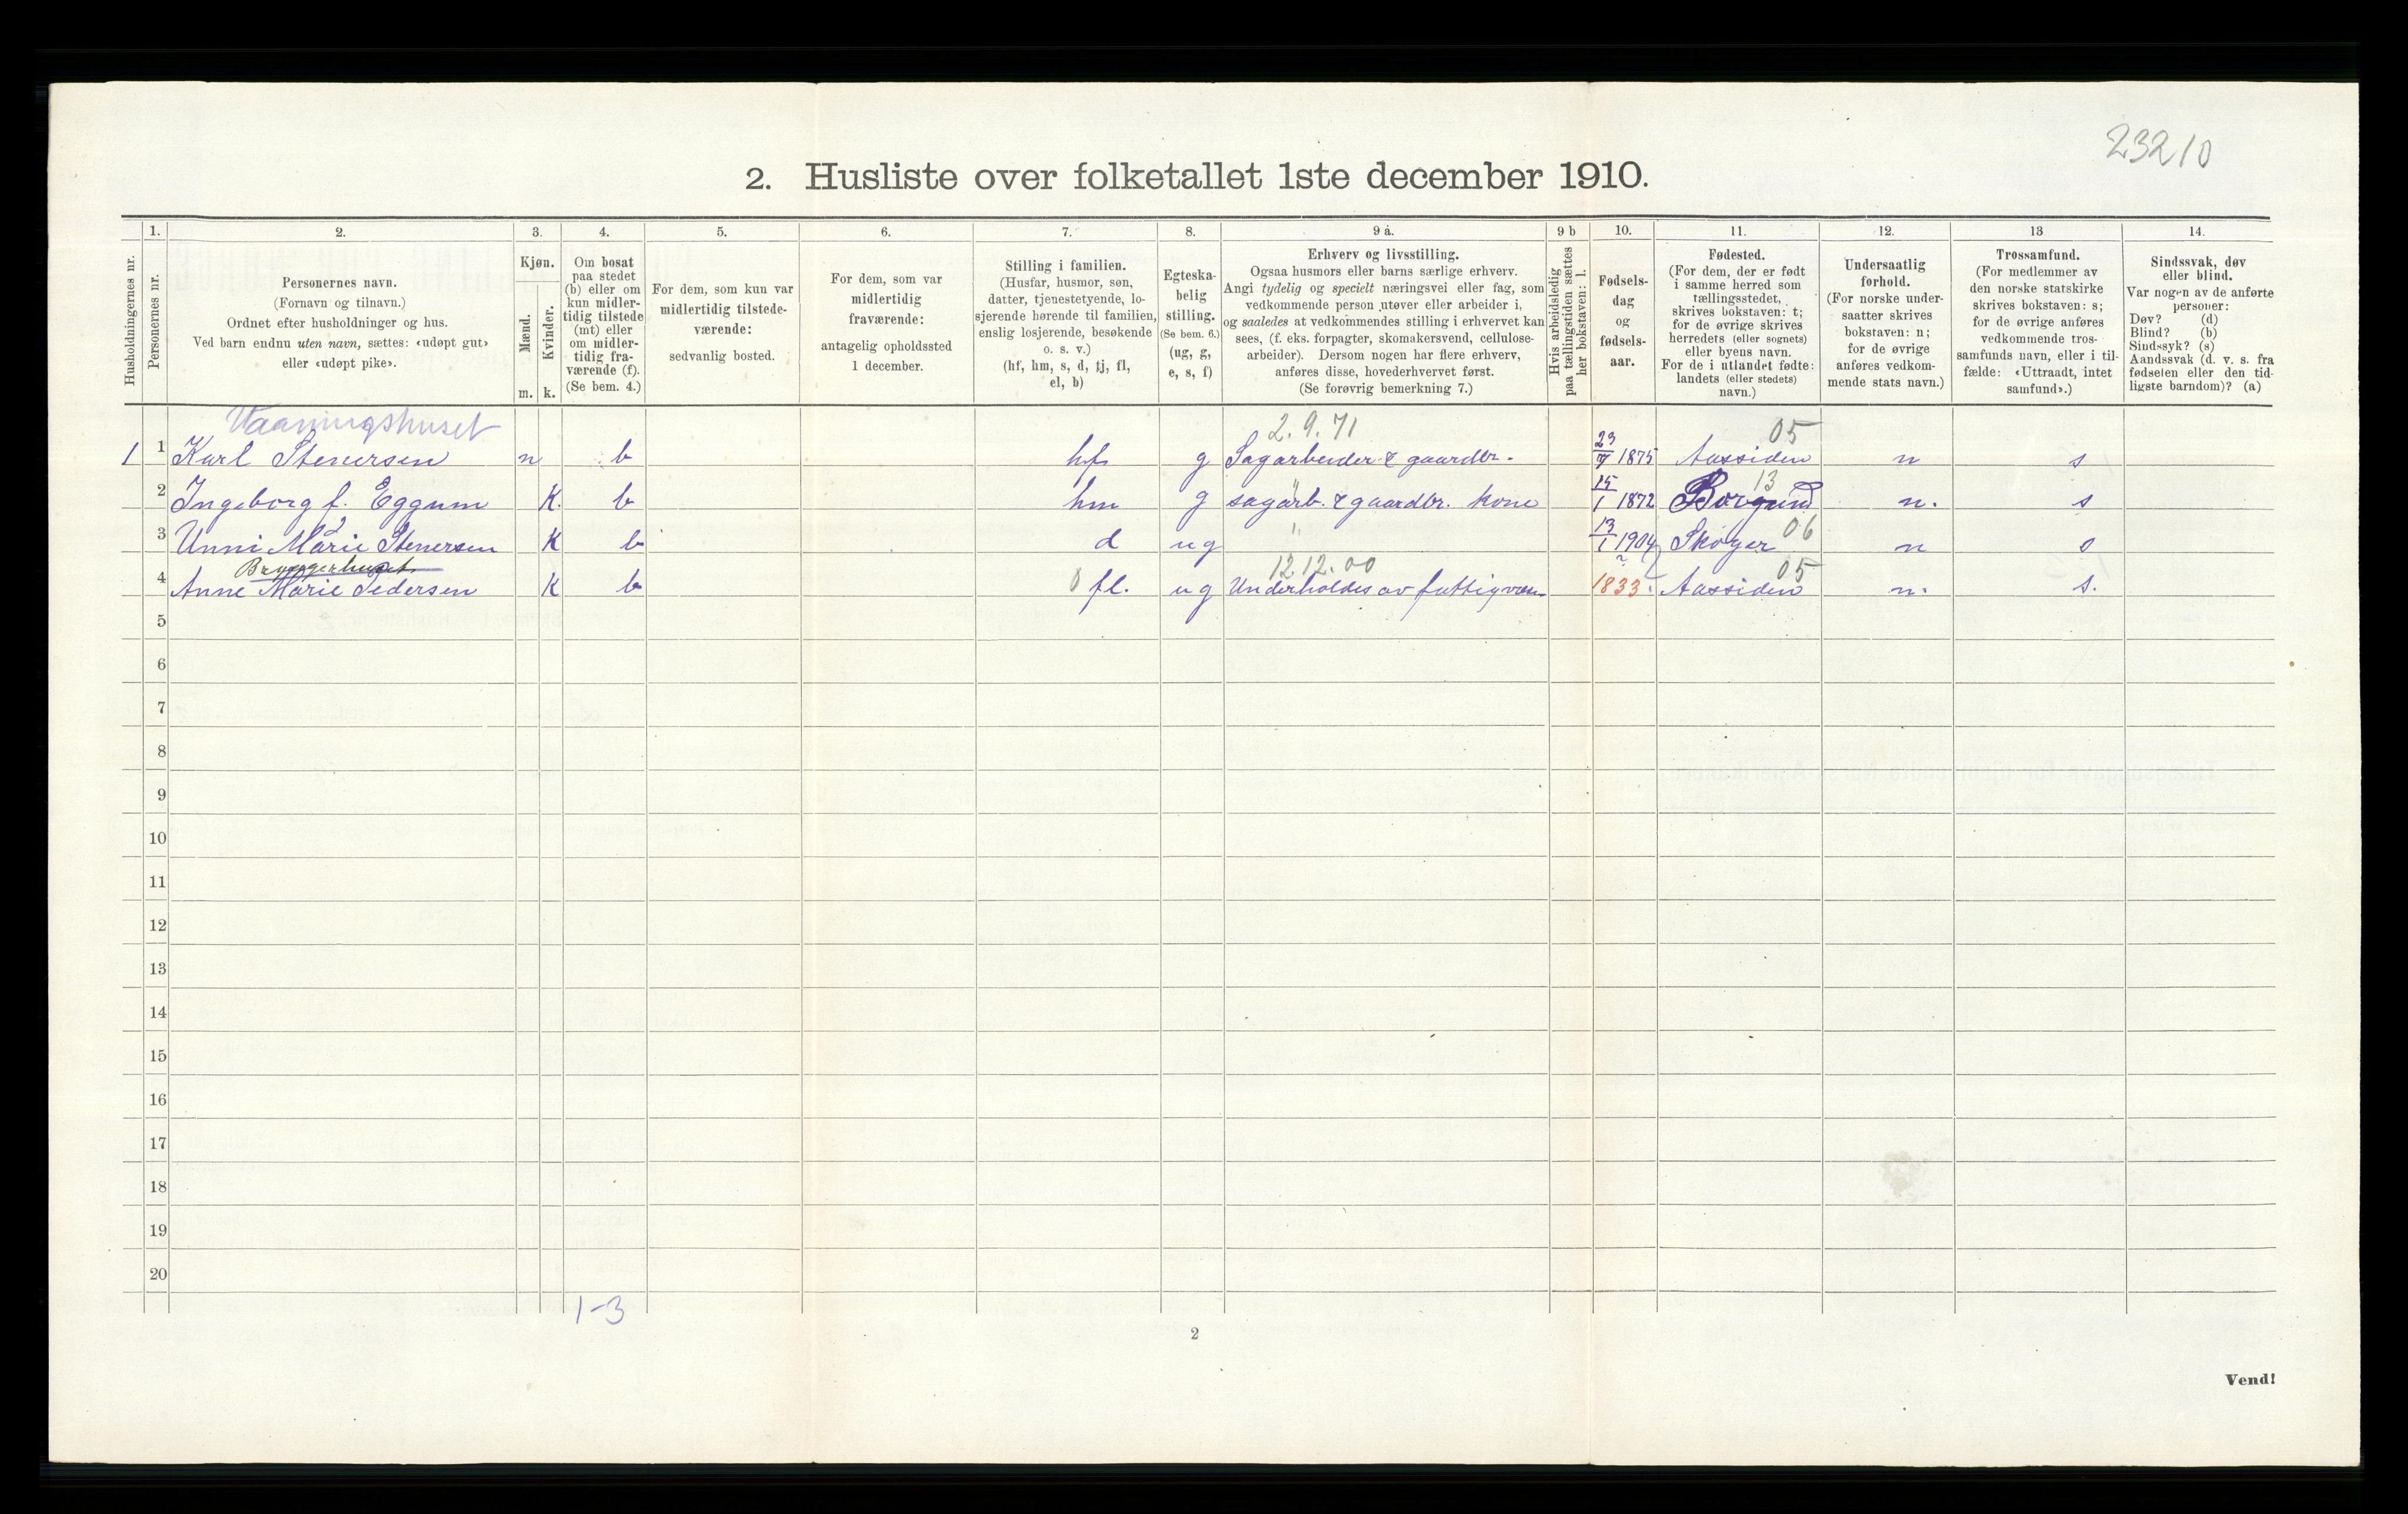 23210
2. Husliste over folketallet 1ste december 1910.
Husholdningernes nr.
1. Personernes nr.
2. Personernes navn. (Fornavn og tilnavn.) Ordnet efter husholdninger og hus. Ved barn endnu uten navn, sættes: «udøpt gut» eller «udøpt pike».
3. Kjøn. Mænd. Kvinder. m. k.
4. Om bosat paa stedet (b) eller om kun midler-tidig tilstede (mt) eller om midler-tidig fra-værende (f). (Se bem. 4.)
5. For dem, som kun var midlertidig tilstede-værende: sedvanlig bosted.
6. For dem, som var midlertidig fraværende: antagelig opholdssted 1 december.
7. Stilling i familien. (Husfar, husmor, søn, datter, tjenestetyende, lo-sjerende hørende til familien, enslig losjerende, besøkende o. s. v.) (hf, hm, s, d, tj, fl, el, b)
8. Egteska-belig stilling. (Se bem. 6.) (ug, g, e, s, f)
9 a. Erhverv og livsstilling. Ogsaa husmors eller barns særlige erhverv. Angi tydelig og specielt næringsvei eller fag, som vedkommende person utøver eller arbeider i, og saaledes at vedkommendes stilling i erhvervet kan sees, (f. eks. forpagter, skomakersvend, cellulose-arbeider). Dersom nogen har flere erhverv, anføres disse, hovederhvervet først. (Se forøvrig bemerkning 7.)
9 b Hvis arbeidsledig paa tællingstiden sættes her bokstaven: l.
10. Fødsels-dag og fødsels-aar.
11. Fødested. (For dem, der er født i samme herred som tællingsstedet, skrives bokstaven: t; for de øvrige skrives herredets (eller sognets) eller byens navn. For de i utlandet fødte: landets (eller stedets) navn.)
12. Undersaatlig forhold. (For norske under-saatter skrives bokstaven: n; for de øvrige anføres vedkom-mende stats navn.)
13 Trossamfund. (For medlemmer av den norske statskirke skrives bokstaven: s; for de øvrige anføres vedkommende tros-samfunds navn, eller i til-fælde: «Uttraadt, intet samfund».)
14. Sindssvak, døv eller blind. Var nogen av de anførte personer: Døv? (d) Blind? (b) Sindssyk? (s) Aandssvak (d. v. s. fra fødselen eller den tid-ligste barndom)? (a)
Vaaningshuset 2.9.71 05
1 1 Karl Stenersen m b hf g Sagarbeider & gaardbr. 23/7 1875 Aassiden n s
13
2 Ingeborg f. Eggum K. b hm g sagarb. & gaardbr. kone 15/1 1872 Borgund n. s
3 Unni Marie Stenersen K b d ug " 13/1 1904 Skoger 06 n s
Bryggerhuset. 12.12.00 05
4 Anne Marie Pedersen K b fl. ug Underholdes av fattigvæs. 1833 Aassiden n. s.
5
6
7
8
9
10
11
12
13
14
15
16
17
18
19
20
1-3
2
Vend!